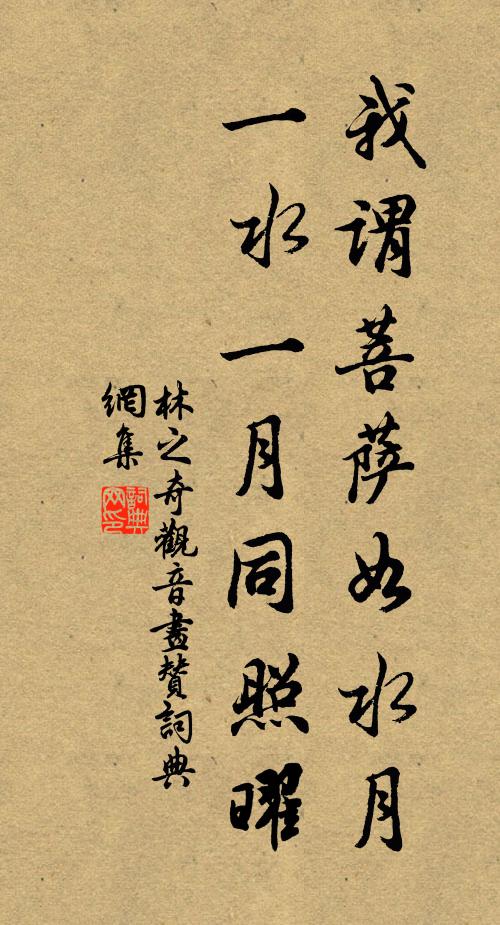 我謂菩薩如水月
一水一月同照曜
林之奇觀音畫贊詞典
網集
詞典
网印